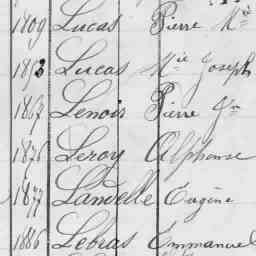 1809 Lucas Pierre Mie
1853 Lucas Mie Joseph
1857 Lenoir Pierre
1876 Leroy Alphonse
1877 Landelle Eugène
1886 Lebras Emmanuel